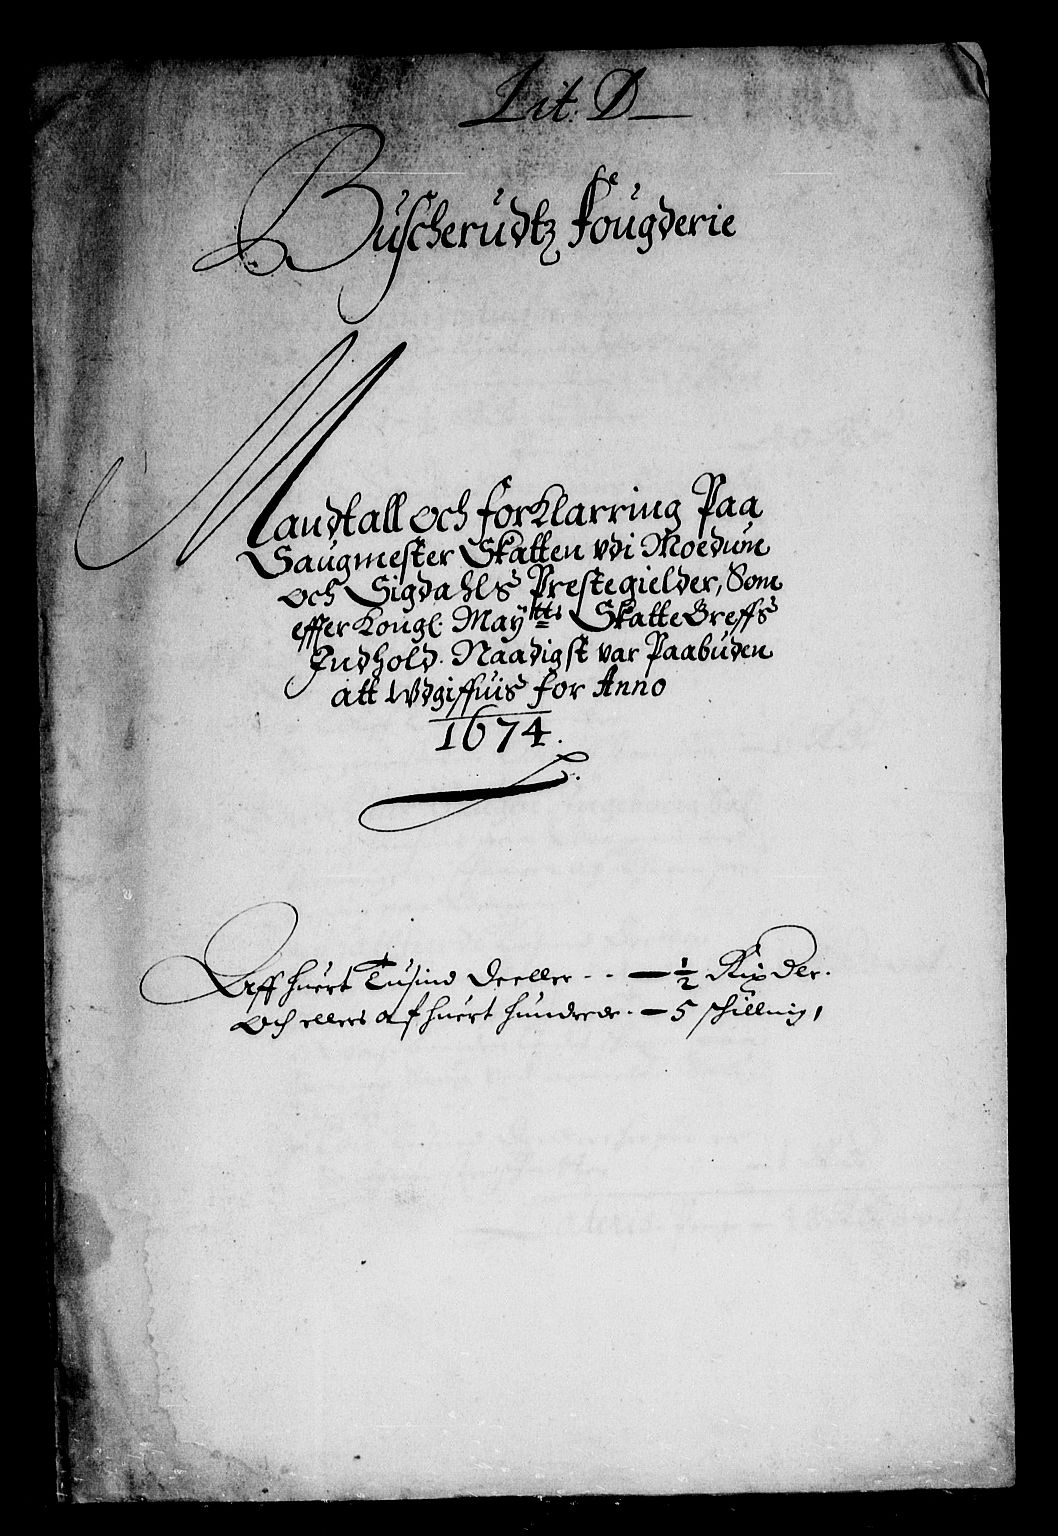 Lit. D
Buscherudtz Fougderie
Mandtall och forKlarring Paa
Saugmester Skatten vdi Moedum
och Sigdahls Prestegielder, Som
effter Kongl. Maytts Skattebreffs
Indhold. Naadigst var Paabuden
att Wdgiffuis for Anno
1674.
Aff huert Tusind Deeller - - — 1/2 Rix Dlr.
Och ellers af huert hundrede. — 5 skilling,